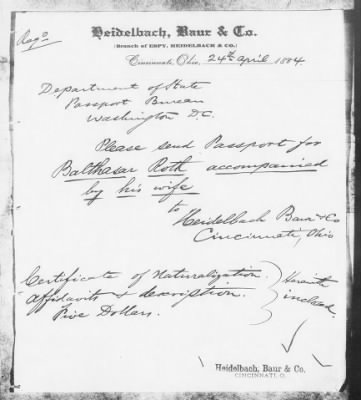 Heidelbach, Baur & Co.
(Branch of ESPY, HEIDELBACH & CO.)
Cincinnati, Ohio, 24th April 1884
Department of State
Passport Bureau
Washington D.C.
Please send Passport for
Balthasar Roth accompanied
by his wife
to
Heidelbach Baur & Co
Cincinnati, Ohio
Certificate of Naturalization.
Affidavits & description.
Five Dollars.
Herewith
inclosed.
Heidelbach, Baur & Co.
CINCINNATI, O.